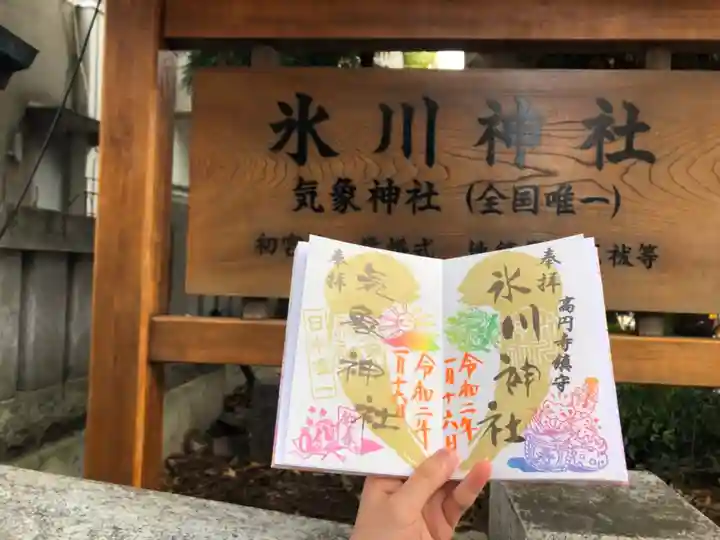 氷川神社
気象神社 (全国唯一)
初宮
祓等
奉拝
氷川神社
高円寺鎮守
令和二年
一月十六日
奉拝
気象神社
令和二年
一月十六日